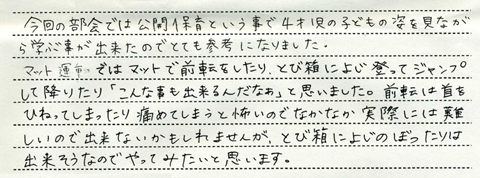 今回の部会では公開保育という事で4才児の子どもの姿を見なが
ら学ぶ事が出来たのでとても参考になりました。
マット運動ではマットで前転をしたり、とび箱によじ登ってジャンプ
して降りたり「こんな事も出来るんだなぁ」と思いました。前転は首を
ひねってしまったり痛めてしまうと怖いのでなかなか実際には難
しいので出来ないかもしれませんが、とび箱によじのぼったりは
出来そうなのでやってみたいと思います。